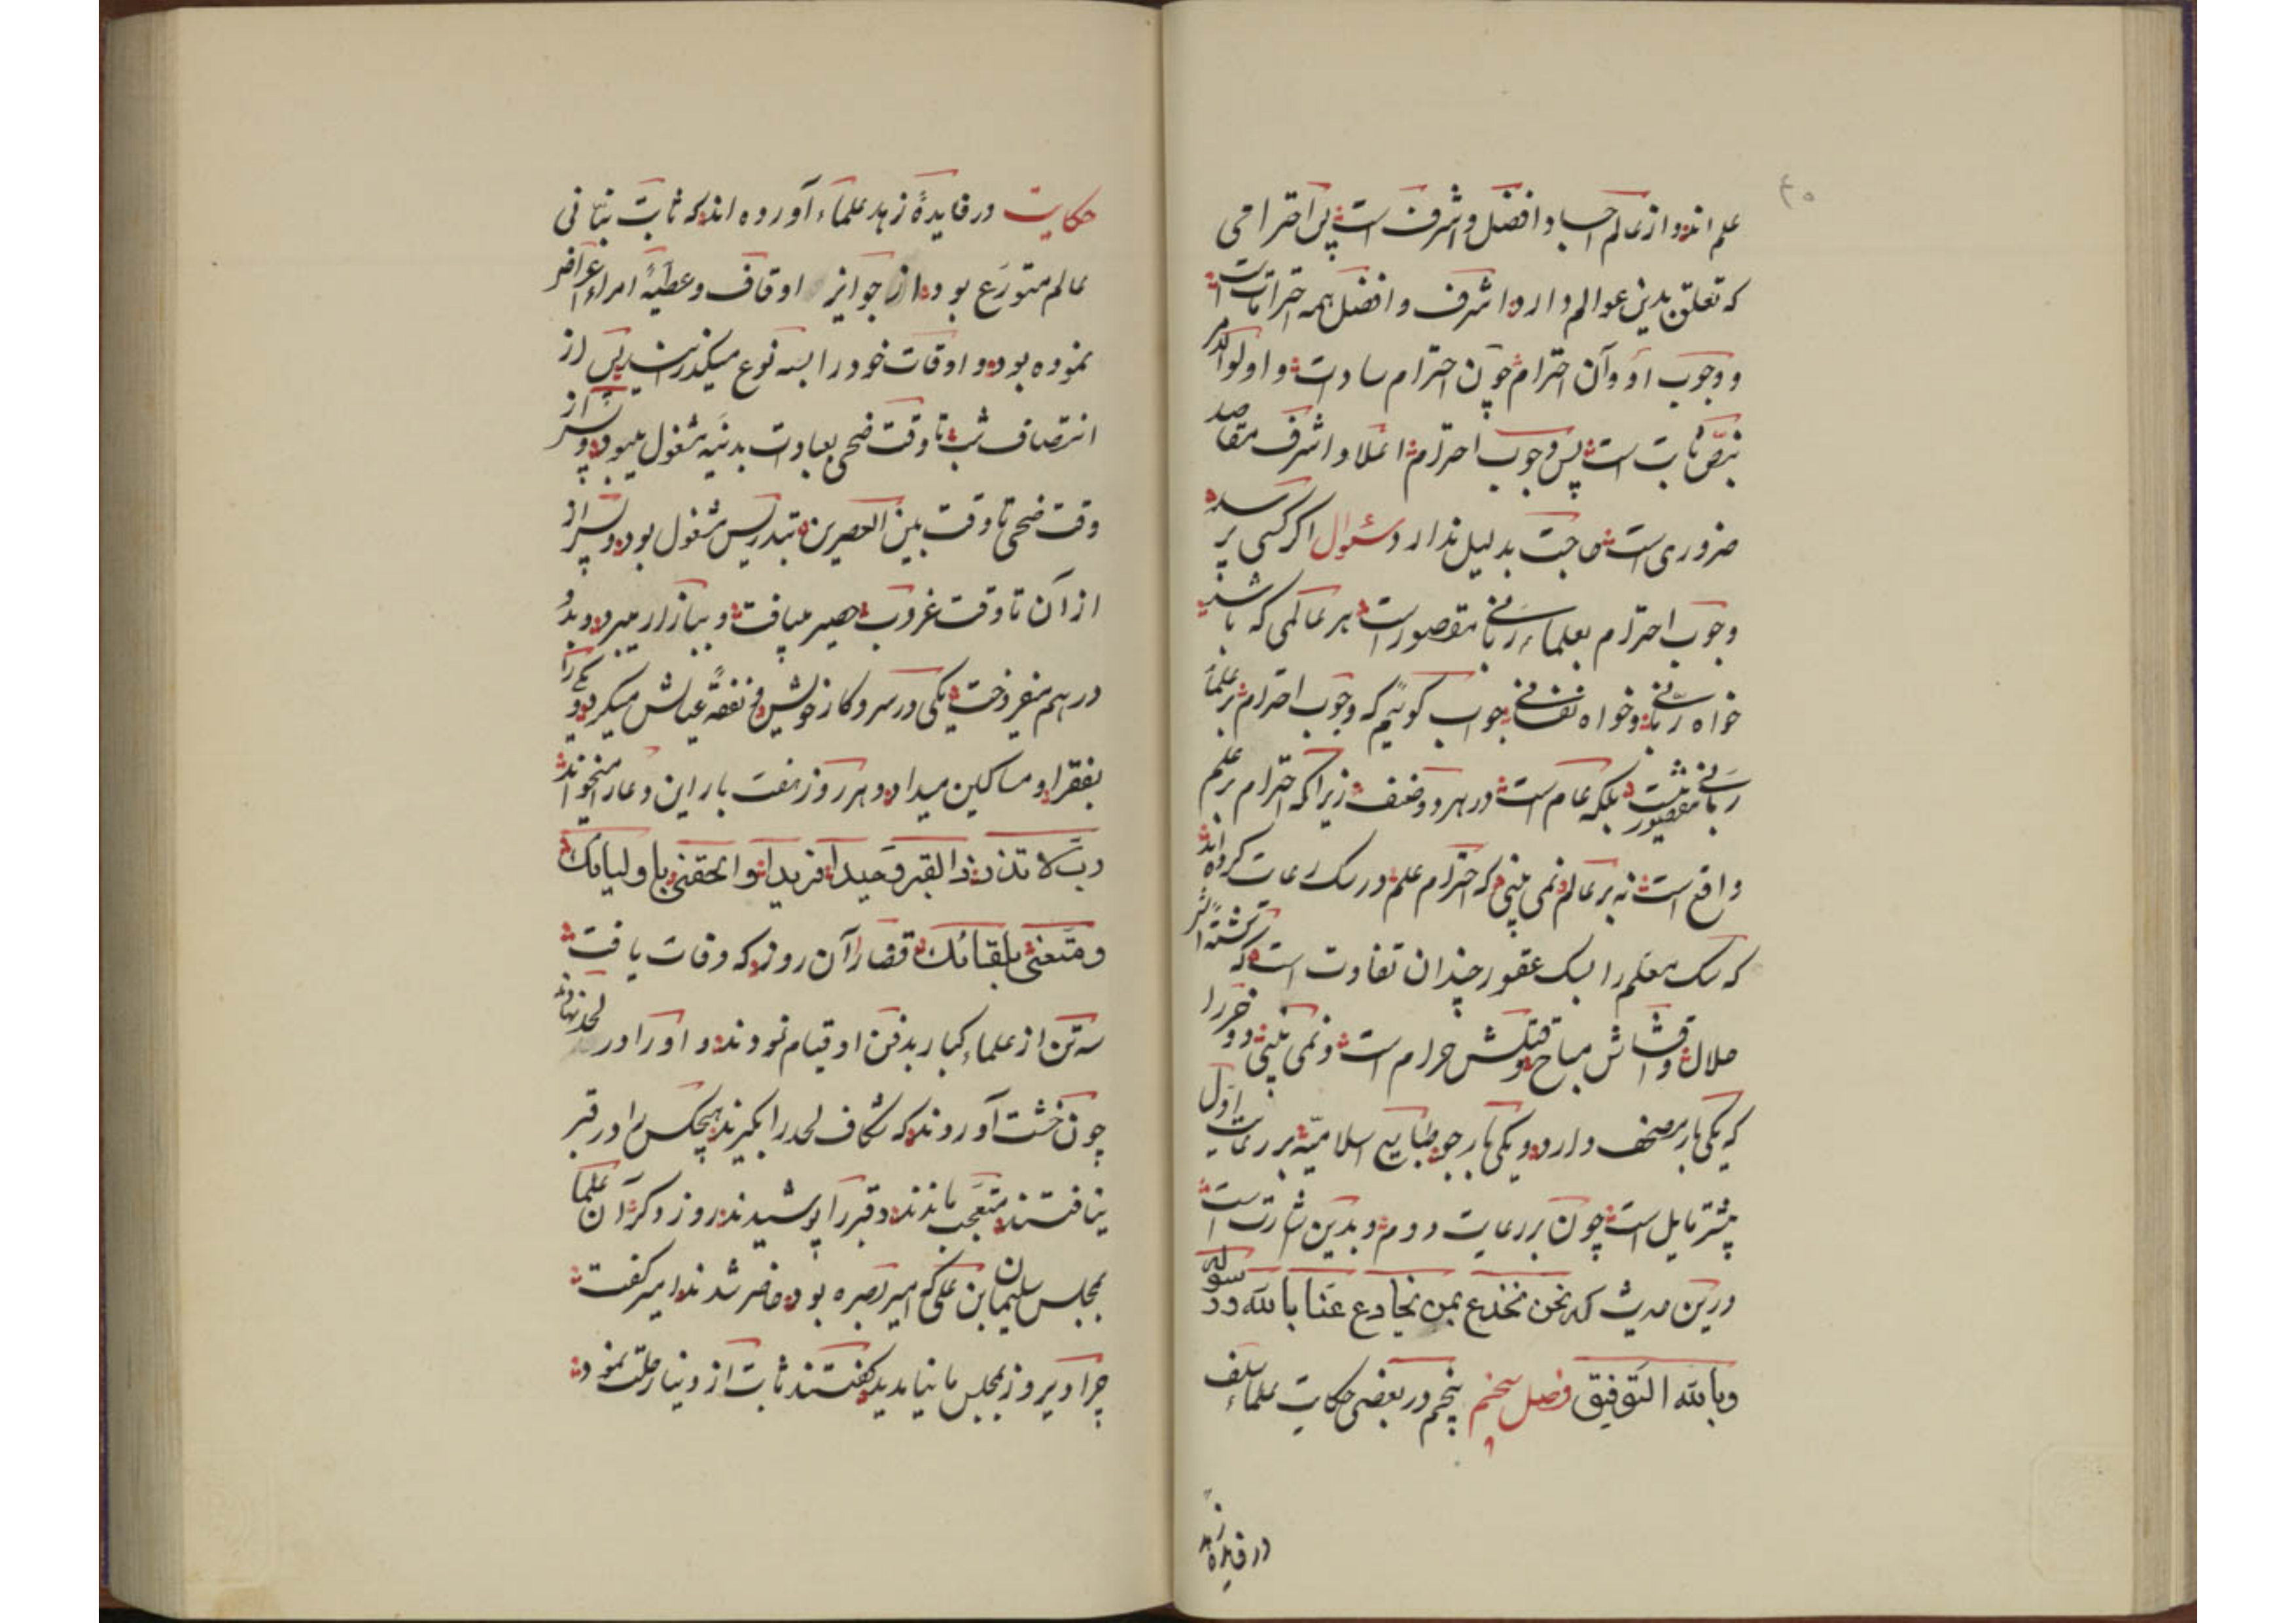 ۴۰
علم اند و از عالم اجساد افضل و اشرف است پس احترامی
که تعلق بدین عوالم دارد اشرف و افضل همه احترامات است
و وجوب او و آن احترام چون احترام سادات و اولوا الامر
بنص ثابت است پس وجوب احترام اعلا و اشرف مقاصد
ضروری است حاجت بدلیل ندارد سئوال اگر کسی پرسد
وجوب احترام بعلماء ربانی مقصور است هر عالمی که باشد
خواه ربانی و خواه نفسانی جواب گوئیم که وجوب احترام بر علماء
ربانی مقصور نیست بلکه عام است در هر دو صنف زیرا که احترام بر علم
واقع است نه بر عالم و نمی بینی که احترام علم در سک رعایت کرده اند
که سک معلم را بسک عقور چندان تفاوت است که کشتهٔ این
حلال و اقتناش مباح و قتلش حرام است و نمی بینی دو خر را
که یکی بار مصحف دارد و یکی بار جو طبایع اسلامیه بر رعایت اول
بیشتر مایل است چون بر رعایت دوم و بدین اشارت است
درین حدیث که نحن نخدع بمن یخادع عنا بالله و رسوله
وبالله التوفیق فصل پنجم در بعضی حکایت علماء سلف
در فایدهٔ زهد
حکایت در فایدهٔ زهد علماء آورده اند که ثابت بنانی
عالم متورع بود از جوایز اوقاف و عطیهٔ امراء اعراض
نموده بود و اوقات خود را بسه نوع میکذرانید پس از
انتصاف شب تا وقت ضحی بعبادت بدنیه مشغول میبود و پس از
وقت ضحی تا وقت بین العصرین بتدریس مشغول بود و پس از
از آن تا وقت غروب حصیر میبافت و ببازار میبرد و بدو
درهم میفروخت یکی در سر و کار خویش و نفقهٔ عیالش میکرد و یکی را
بفقرا و مساکین میداد و هر روز هفت بار این دعا را میخواند
رب لا تذرنی فی القبر وحیدا فریدا و الحقنی باولیائک
ومتعنی بلقائک قضا را آن روز که وفات یافت
سه تن از علماء کبار بدفن او قیام نمودند و او را در لحد نهادند
چون خشت آوردند که شکاف لحد را بکیرند هیچکس را در قبر
نیافتند متعجب ماندند و قبر را پوشیدند روز دکر آن علما
بمجلس سلیمان بن علی که امیر بصره بود حاضر شدند امیر کفت
چرا دیروز بمجلس ما نیامدید کفتند ثابت از دنیا رحلت نمود